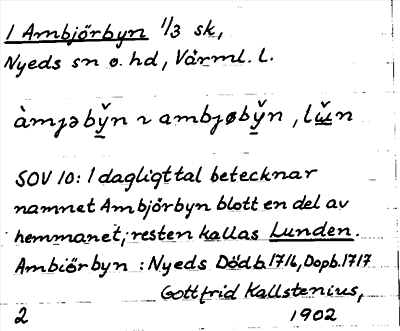 1 Ambjörbyn 1/3 sk,
Nyeds sn o. hd, Värml. l.
àmjəby̌n ~ ambjøby̌n, lǔ̯n
SOV 10: I dagligt tal betecknar
namnet Ambjörbyn blott en del av
hemmanet; resten kallas Lunden.
Ambiörbyn : Nyeds Dödb. 1716, Dopb. 1717
Gottfrid Kallstenius,
2 1902